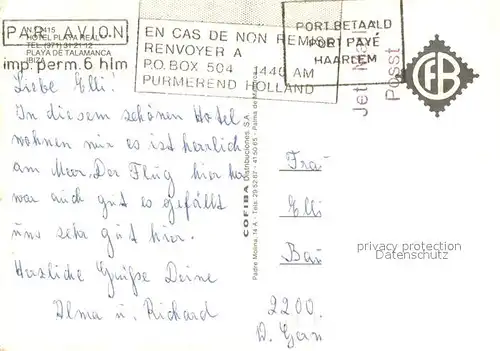 PAR AVION
N. 20415
HOTEL PLAYA REAL
TEL. (971) 31 21 12
PLAYA DE TALAMANCA
IBIZA
imp. perm. 6 hlm
EN CAS DE NON REMISE
RENVOYER A
P.O. BOX 504 1440 AM
PURMEREND HOLLAND
PORT BETAALD
PORT PAYÉ
HAARLEM
Jet Mail
Posst
CFB
Liebe Elli!
In diesem schönen Hotel
wohnen wir es ist herrlich
am Meer. Der Flug hier her
war auch gut es gefällt
uns sehr gut hier.
Herzliche Grüße Deine
Alma u. Richard
COFIBA Distribuciones, S.A.
Padre Molina, 14 A - Tels. 29 52 67 - 41 50 65 - Palma de Mallorca
Frau
Elli
Bau
2200
privacy protection
Datenschutz